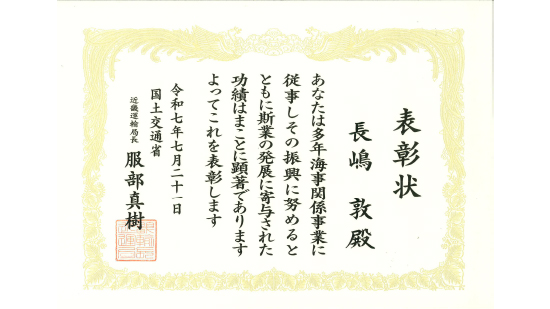 表彰状
長嶋 敦 殿
あなたは多年海事関係事業に
従事しその振興に努めると
ともに斯業の発展に寄与された
功績はまことに顕著であります
よってこれを表彰します
令和七年七月二十一日
国土交通省
近畿運輸局長 服部真樹